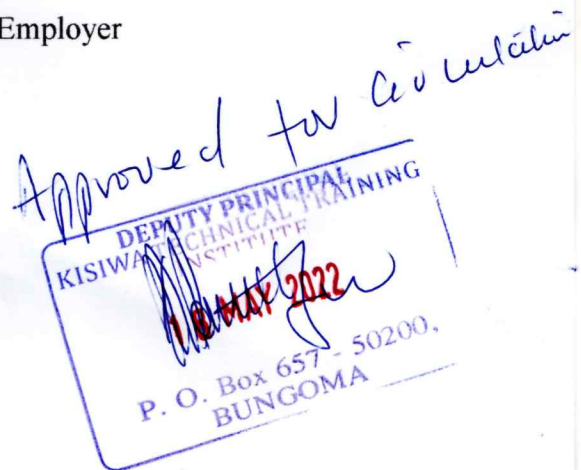 Employer
Approved for Circulation
DEPUTY PRINCIPAL
KISIWA TECHNICAL TRAINING
INSTITUTE
MAY 2022
P. O. Box 657 - 50200,
BUNGOMA